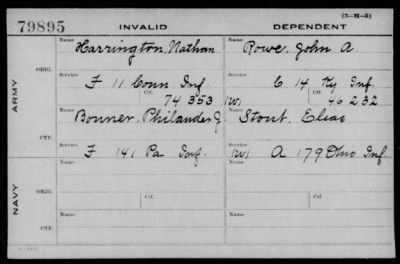 (3-M-3)
79895 INVALID DEPENDENT
Name Harrington, Nathan Name Rowe, John A.
ORIG.
Service F 11 Conn Inf. Service C 14 Ky Inf.
Ctf. 74 353 (W) Ctf. 46 232
ARMY
Name Bonner, Philander J. Name Stout, Elias
CTF.
Service F 141 Pa Inf. (W) Service A 179 Ohio Inf.
Name Name
ORIG.
Service Ctf. Service Ctf.
NAVY
Name Name
CTF.
Service Service